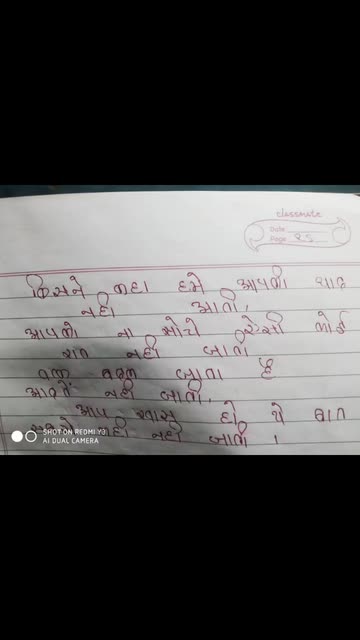 classmate
Date
Page
કિસને કહા હમે આપકી યાદ
નહી આતી,
આપકો ના સોચે ઐસી કોઈ
રાત નહી જાતી
વક્ત બદલ જાતા હૈ
આદતે નહી જાતી,
આપ ખાસ હો યે બાત
કહી નહી જાતી ।
SHOT ON REDMI Y3
AI DUAL CAMERA